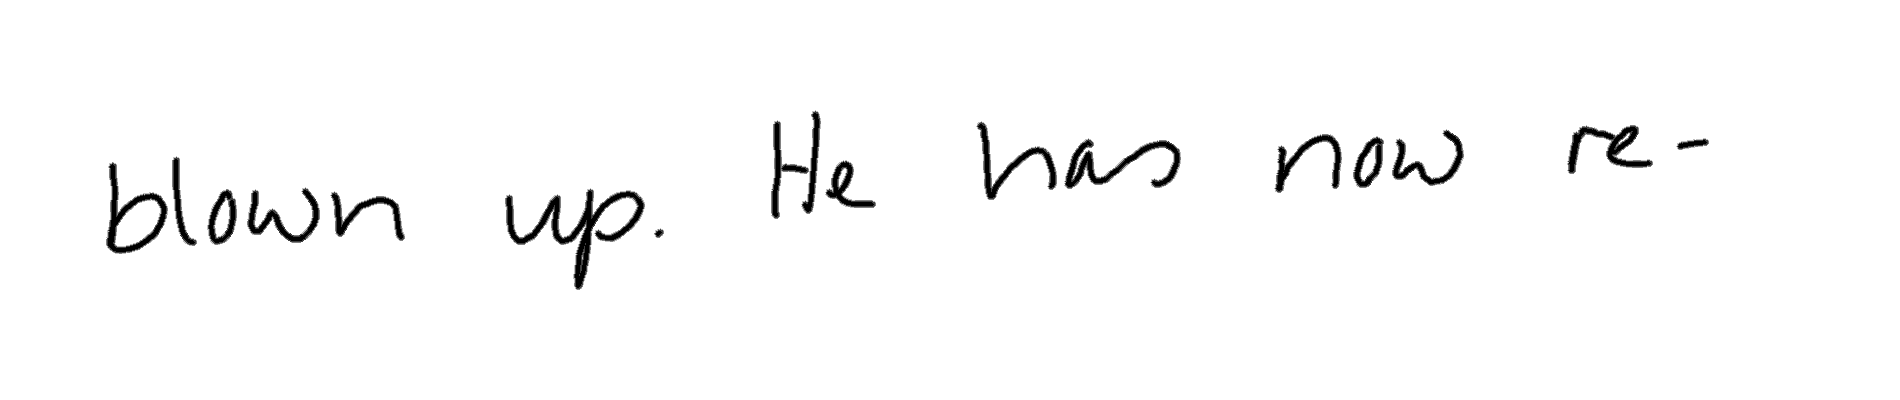 blown up. He has now re-